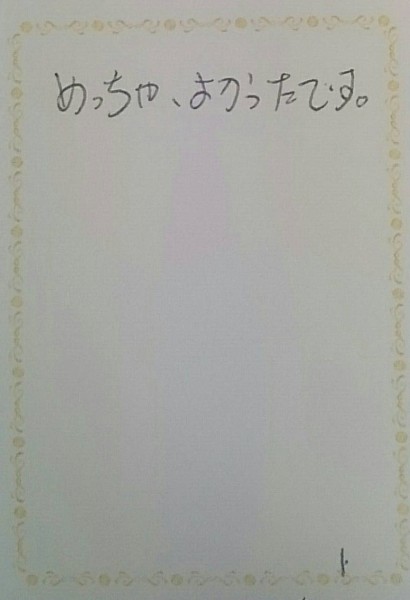 めっちゃ、よかったです。